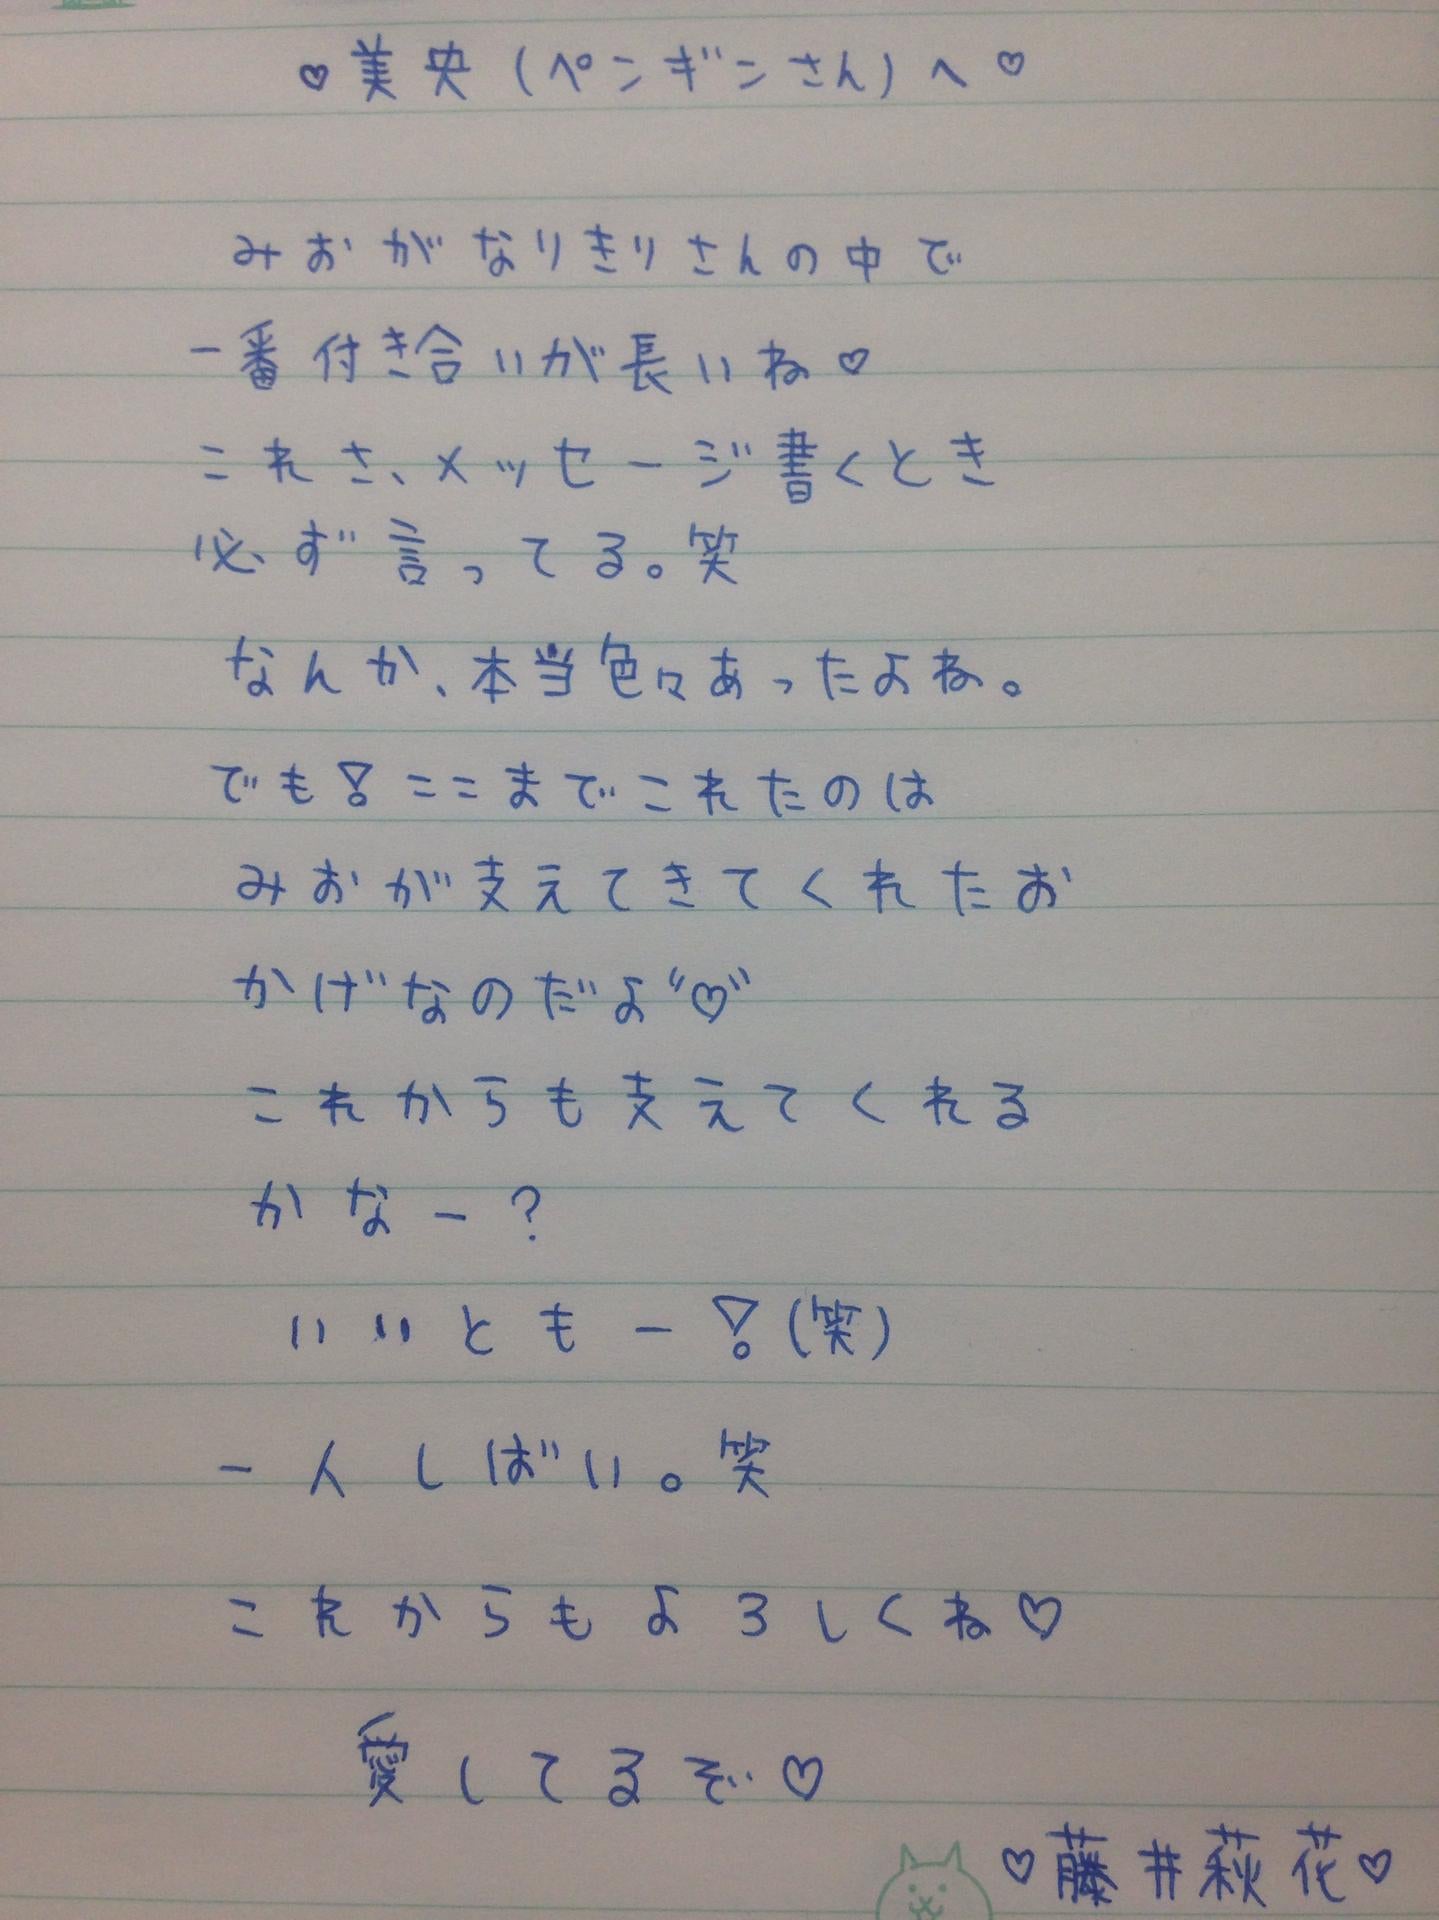 ♡美央(ペンギンさん)へ♡
みおがなりきりさんの中で
一番付き合いが長いね♡
これさ、メッセージ書くとき
必ず言ってる。笑
なんか、本当色々あったよね。
でも!ここまでこれたのは
みおが支えてきてくれたお
かげなのだよ“♡”
これからも支えてくれる
かなー?
いいともー!(笑)
一人しばい。笑
これからもよろしくね♡
愛してるぞ♡
♡藤井萩花♡